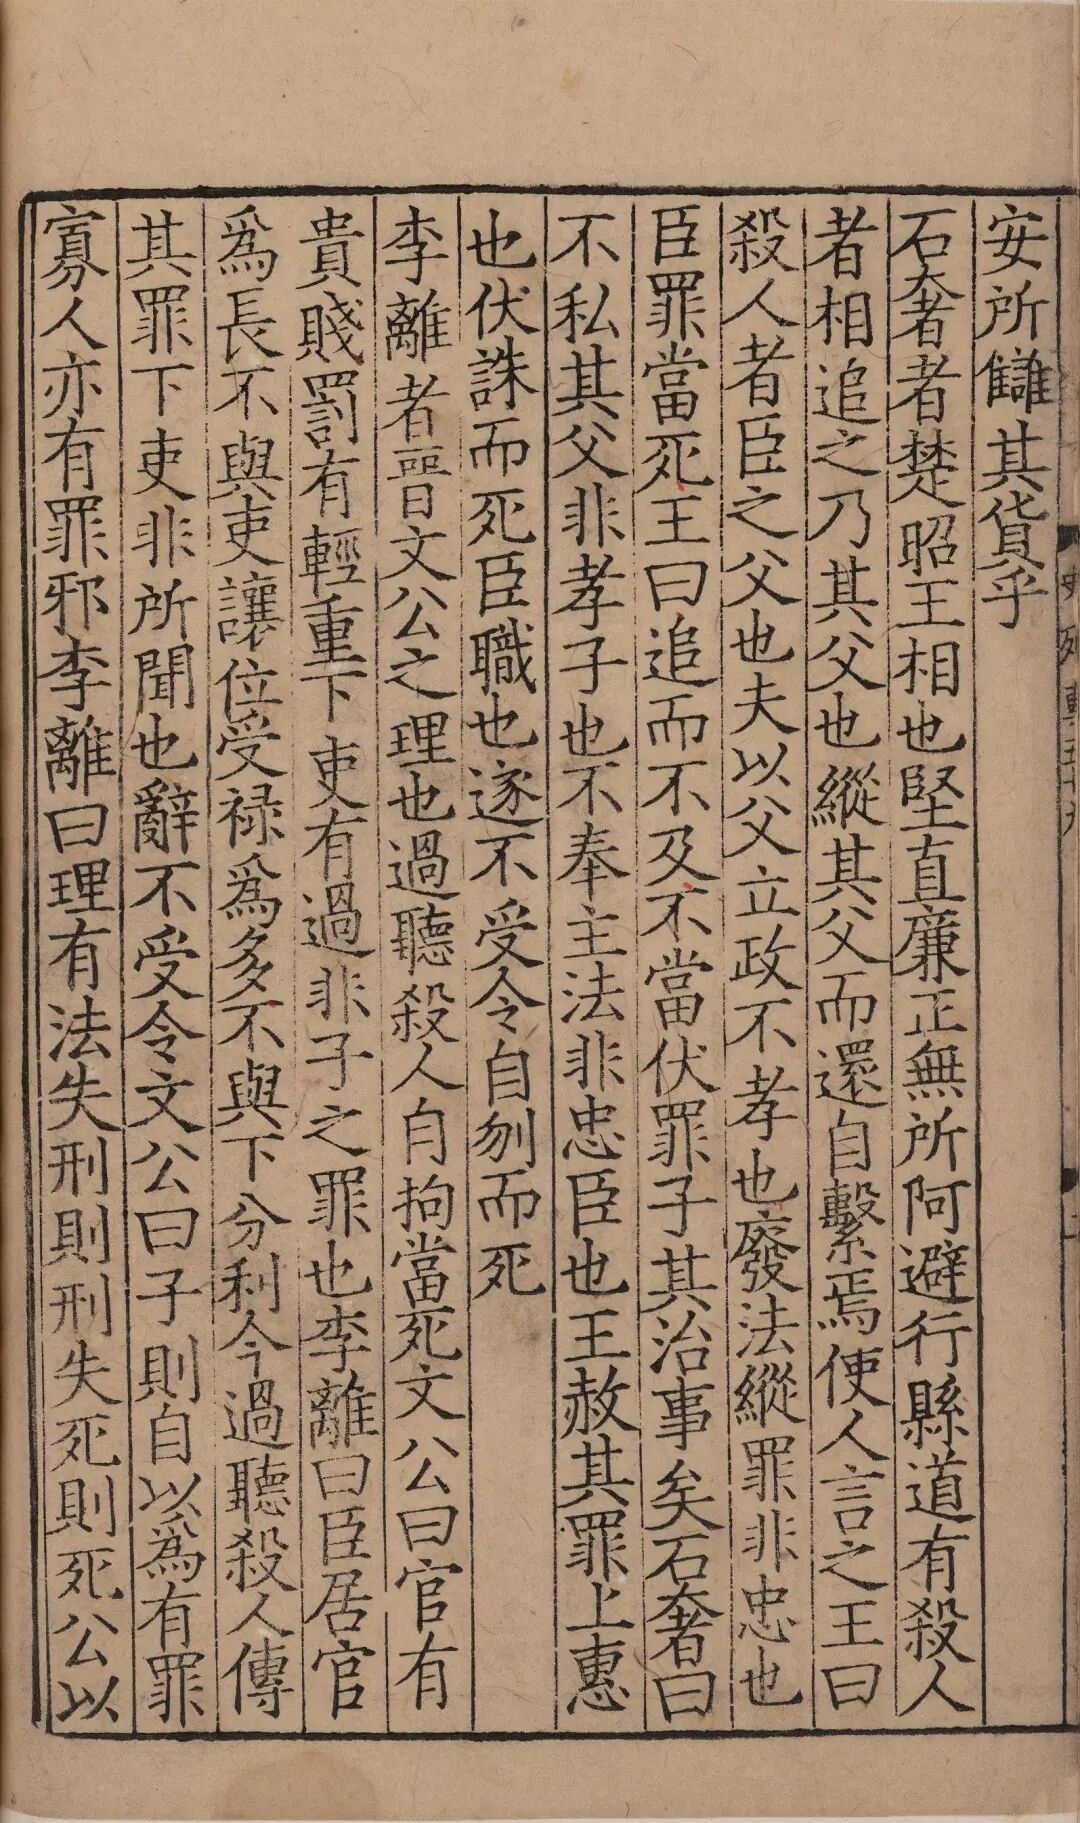 安所讎其貨乎
石奢者楚昭王相也堅直廉正無所阿避行縣道有殺人
者相追之乃其父也縱其父而還自繫焉使人言之王曰
殺人者臣之父也夫以父立政不孝也廢法縱罪非忠也
臣罪當死王曰追而不及不當伏罪子其治事矣石奢曰
不私其父非孝子也不奉主法非忠臣也王赦其罪上惠
也伏誅而死臣職也遂不受令自刎而死
李離者晉文公之理也過聽殺人自拘當死文公曰官有
貴賤罰有輕重下吏有過非子之罪也李離曰臣居官
為長不與吏讓位受祿為多不與下分利今過聽殺人傳
其罪下吏非所聞也辭不受令文公曰子則自以為有罪
寡人亦有罪邪李離曰理有法失刑則刑失死則死公以